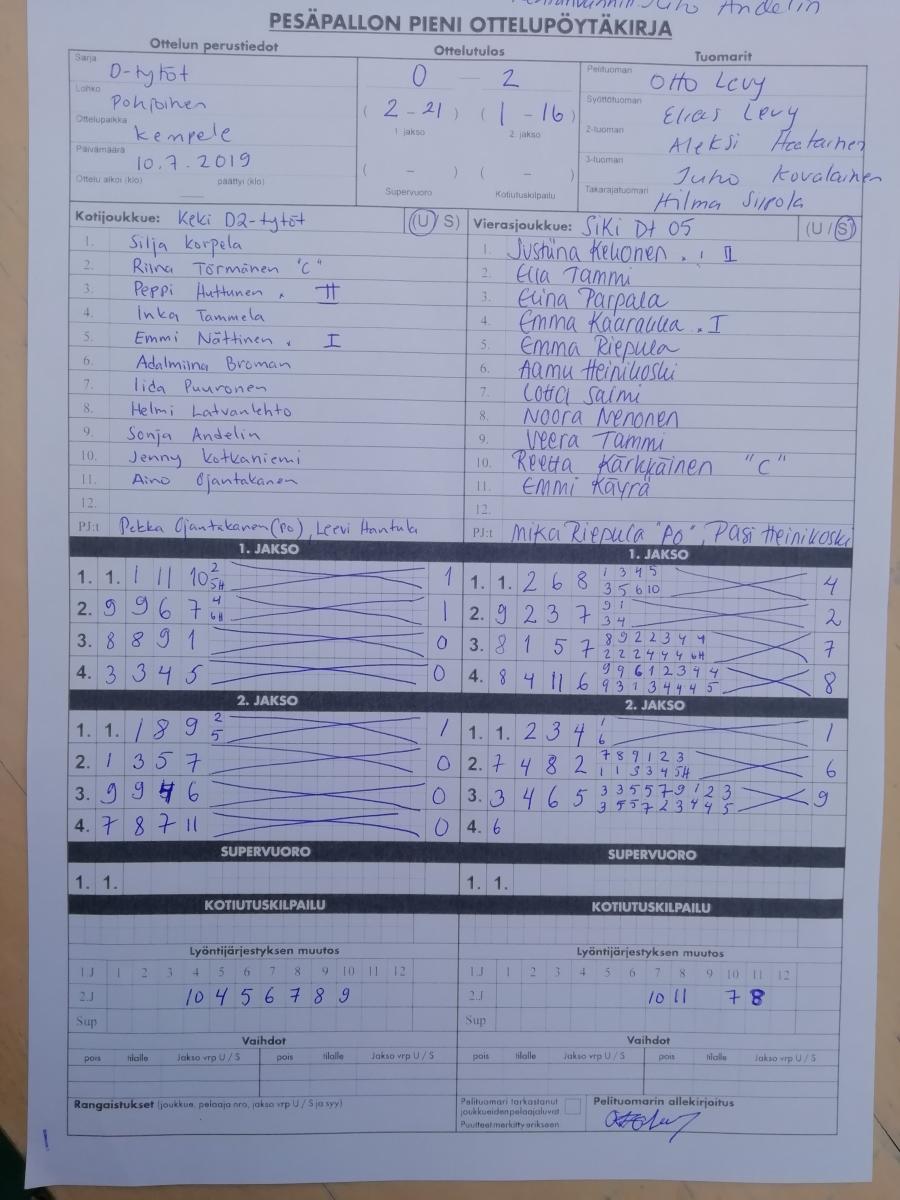 Juho Andelin
PESÄPALLON PIENI OTTELUPÖYTÄKIRJA
Ottelun perustiedot
Ottelutulos
Tuomarit
Sarja D-tytöt
Lohko Pohjoinen
Ottelupaikka Kempele
Päivämäärä 10.7.2019
Ottelu alkoi (klo) päättyi (klo)
0 — 2
( 2 - 21 ) ( 1 - 16 )
1. jakso 2. jakso
( - ) ( - )
Supervuoro Kotiutuskilpailu
Pelituomari Otto Levy
Syöttötuomari Elias Levy
2-tuomari Aleksi
3-tuomari Juho Kovalainen
Takarajatuomari Hilma Siipola
Kotijoukkue: Keki D2-tytöt (U/S)
1. Silja Korpela
2. Riina Törmänen "C"
3. Peppi Huttunen . II
4. Inka Tammela
5. Emmi Nättinen . I
6. Adalmiina Broman
7. Iida Puuronen
8. Helmi Latvanlehto
9. Sonja Andelin
10. Jenny Kotkaniemi
11. Aino Ojantakanen
12.
PJ:t Pekka Ojantakanen (PO), Leevi Hantula
Vierasjoukkue: SiKi Dt 05 (U/S)
1. Justiina Keuonen . II
2. Ella Tammi
3. Elina Parpala
4. Emma . I
5. Emma Riepula
6. Aamu Heinikoski
7. Lotta Saimi
8. Noora Nenonen
9. Veera Tammi
10. Reetta Kärkkäinen "C"
11. Emmi Käyrä
12.
PJ:t Mika Riepula "PO", Pasi Heinikoski
1. JAKSO
1. 1. 1 11 10 2 5H 1
2. 9 9 6 7 4 6H 1
3. 8 8 9 1 0
4. 3 3 4 5 0
2. JAKSO
1. 1. 1 8 9 2 5 1
2. 1 3 5 7 0
3. 9 9 4 6 0
4. 7 8 7 11 0
SUPERVUORO
1. 1.
KOTIUTUSKILPAILU
Lyöntijärjestyksen muutos
1.J 1 2 3 4 5 6 7 8 9 10 11 12
2.J 10 4 5 6 7 8 9
Sup
Vaihdot
pois tilalle Jakso vrp U / S pois tilalle Jakso vrp U / S
Rangaistukset (joukkue, pelaaja nro, jakso vrp U / S ja syy)
1. JAKSO
1. 1. 2 6 8 1 3 4 5 4
3 5 6 10
2. 9 2 3 7 9 1 2
3 4
3. 8 1 5 7 8 9 2 2 3 4 4 7
2 2 2 4 4 4 6H
4. 8 4 11 6 9 9 6 1 2 3 4 4 8
9 3 1 3 4 4 4 5
2. JAKSO
1. 1. 2 3 4 1 1
6
2. 7 4 8 2 7 8 9 1 2 3 6
1 1 3 3 4 5H
3. 3 4 6 5 3 3 5 5 7 9 1 2 3 9
3 5 5 7 2 3 4 4 5
4. 6
SUPERVUORO
1. 1.
KOTIUTUSKILPAILU
Lyöntijärjestyksen muutos
1.J 1 2 3 4 5 6 7 8 9 10 11 12
2.J 10 11 7 8
Sup
Vaihdot
pois tilalle Jakso vrp U / S pois tilalle Jakso vrp U / S
Pelituomari tarkastanut
joukkueiden pelaajaluvat
Puutteet merkitty erikseen
Pelituomarin allekirjoitus